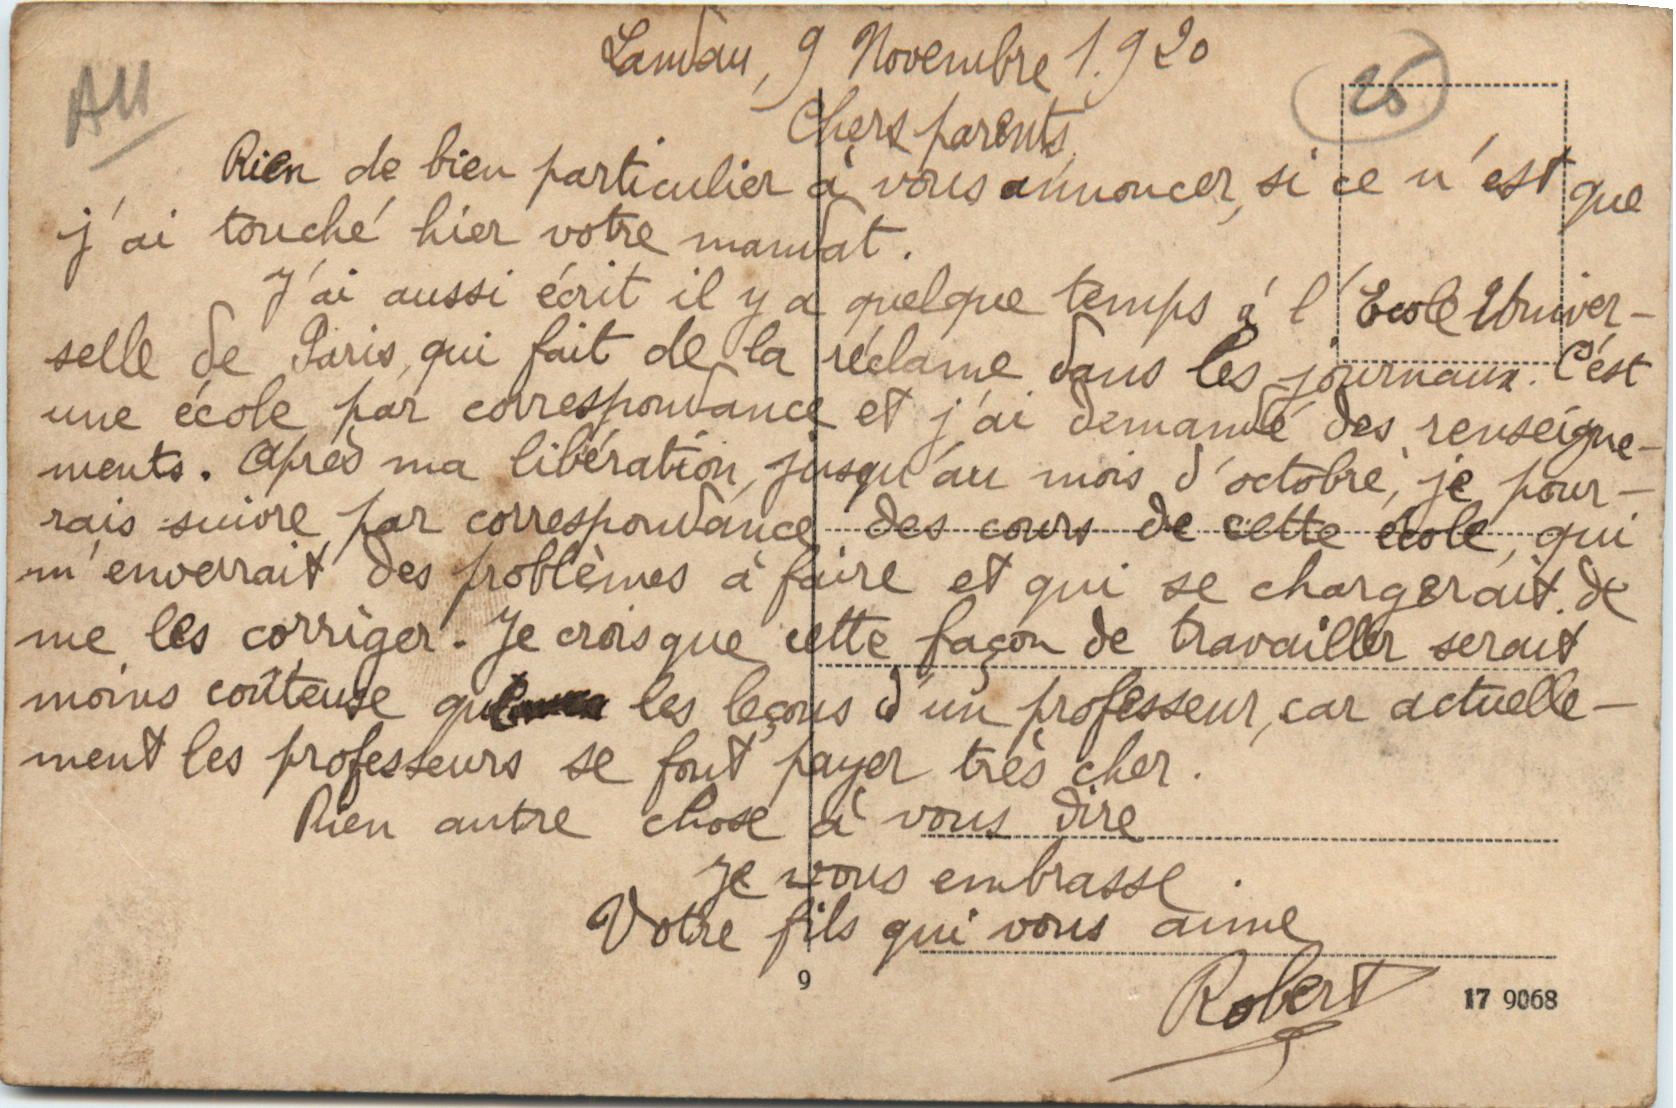 Landau, 9 Novembre 1.920
Chers parents,
Rien de bien particulier à vous annoncer, si ce n'est que
j'ai touché hier votre mandat.
J'ai aussi écrit il y a quelque temps à l'Ecole Univer-
selle de Paris, qui fait de la réclame dans les journaux. C'est
une école par correspondance et j'ai demandé des renseigne-
ments. Après ma libération, jusqu'au mois d'octobre, je pour-
rais suivre par correspondance des cours de cette école, qui
m'enverrait des problèmes à faire et qui se chargerait de
me les corriger. Je crois que cette façon de travailler serait
moins coûteuse que les leçons d'un professeur, car actuelle-
ment les professeurs se font payer très cher.
Rien autre chose à vous dire
Je vous embrasse.
Votre fils qui vous aime
Robert
AU
25
9
17 9068